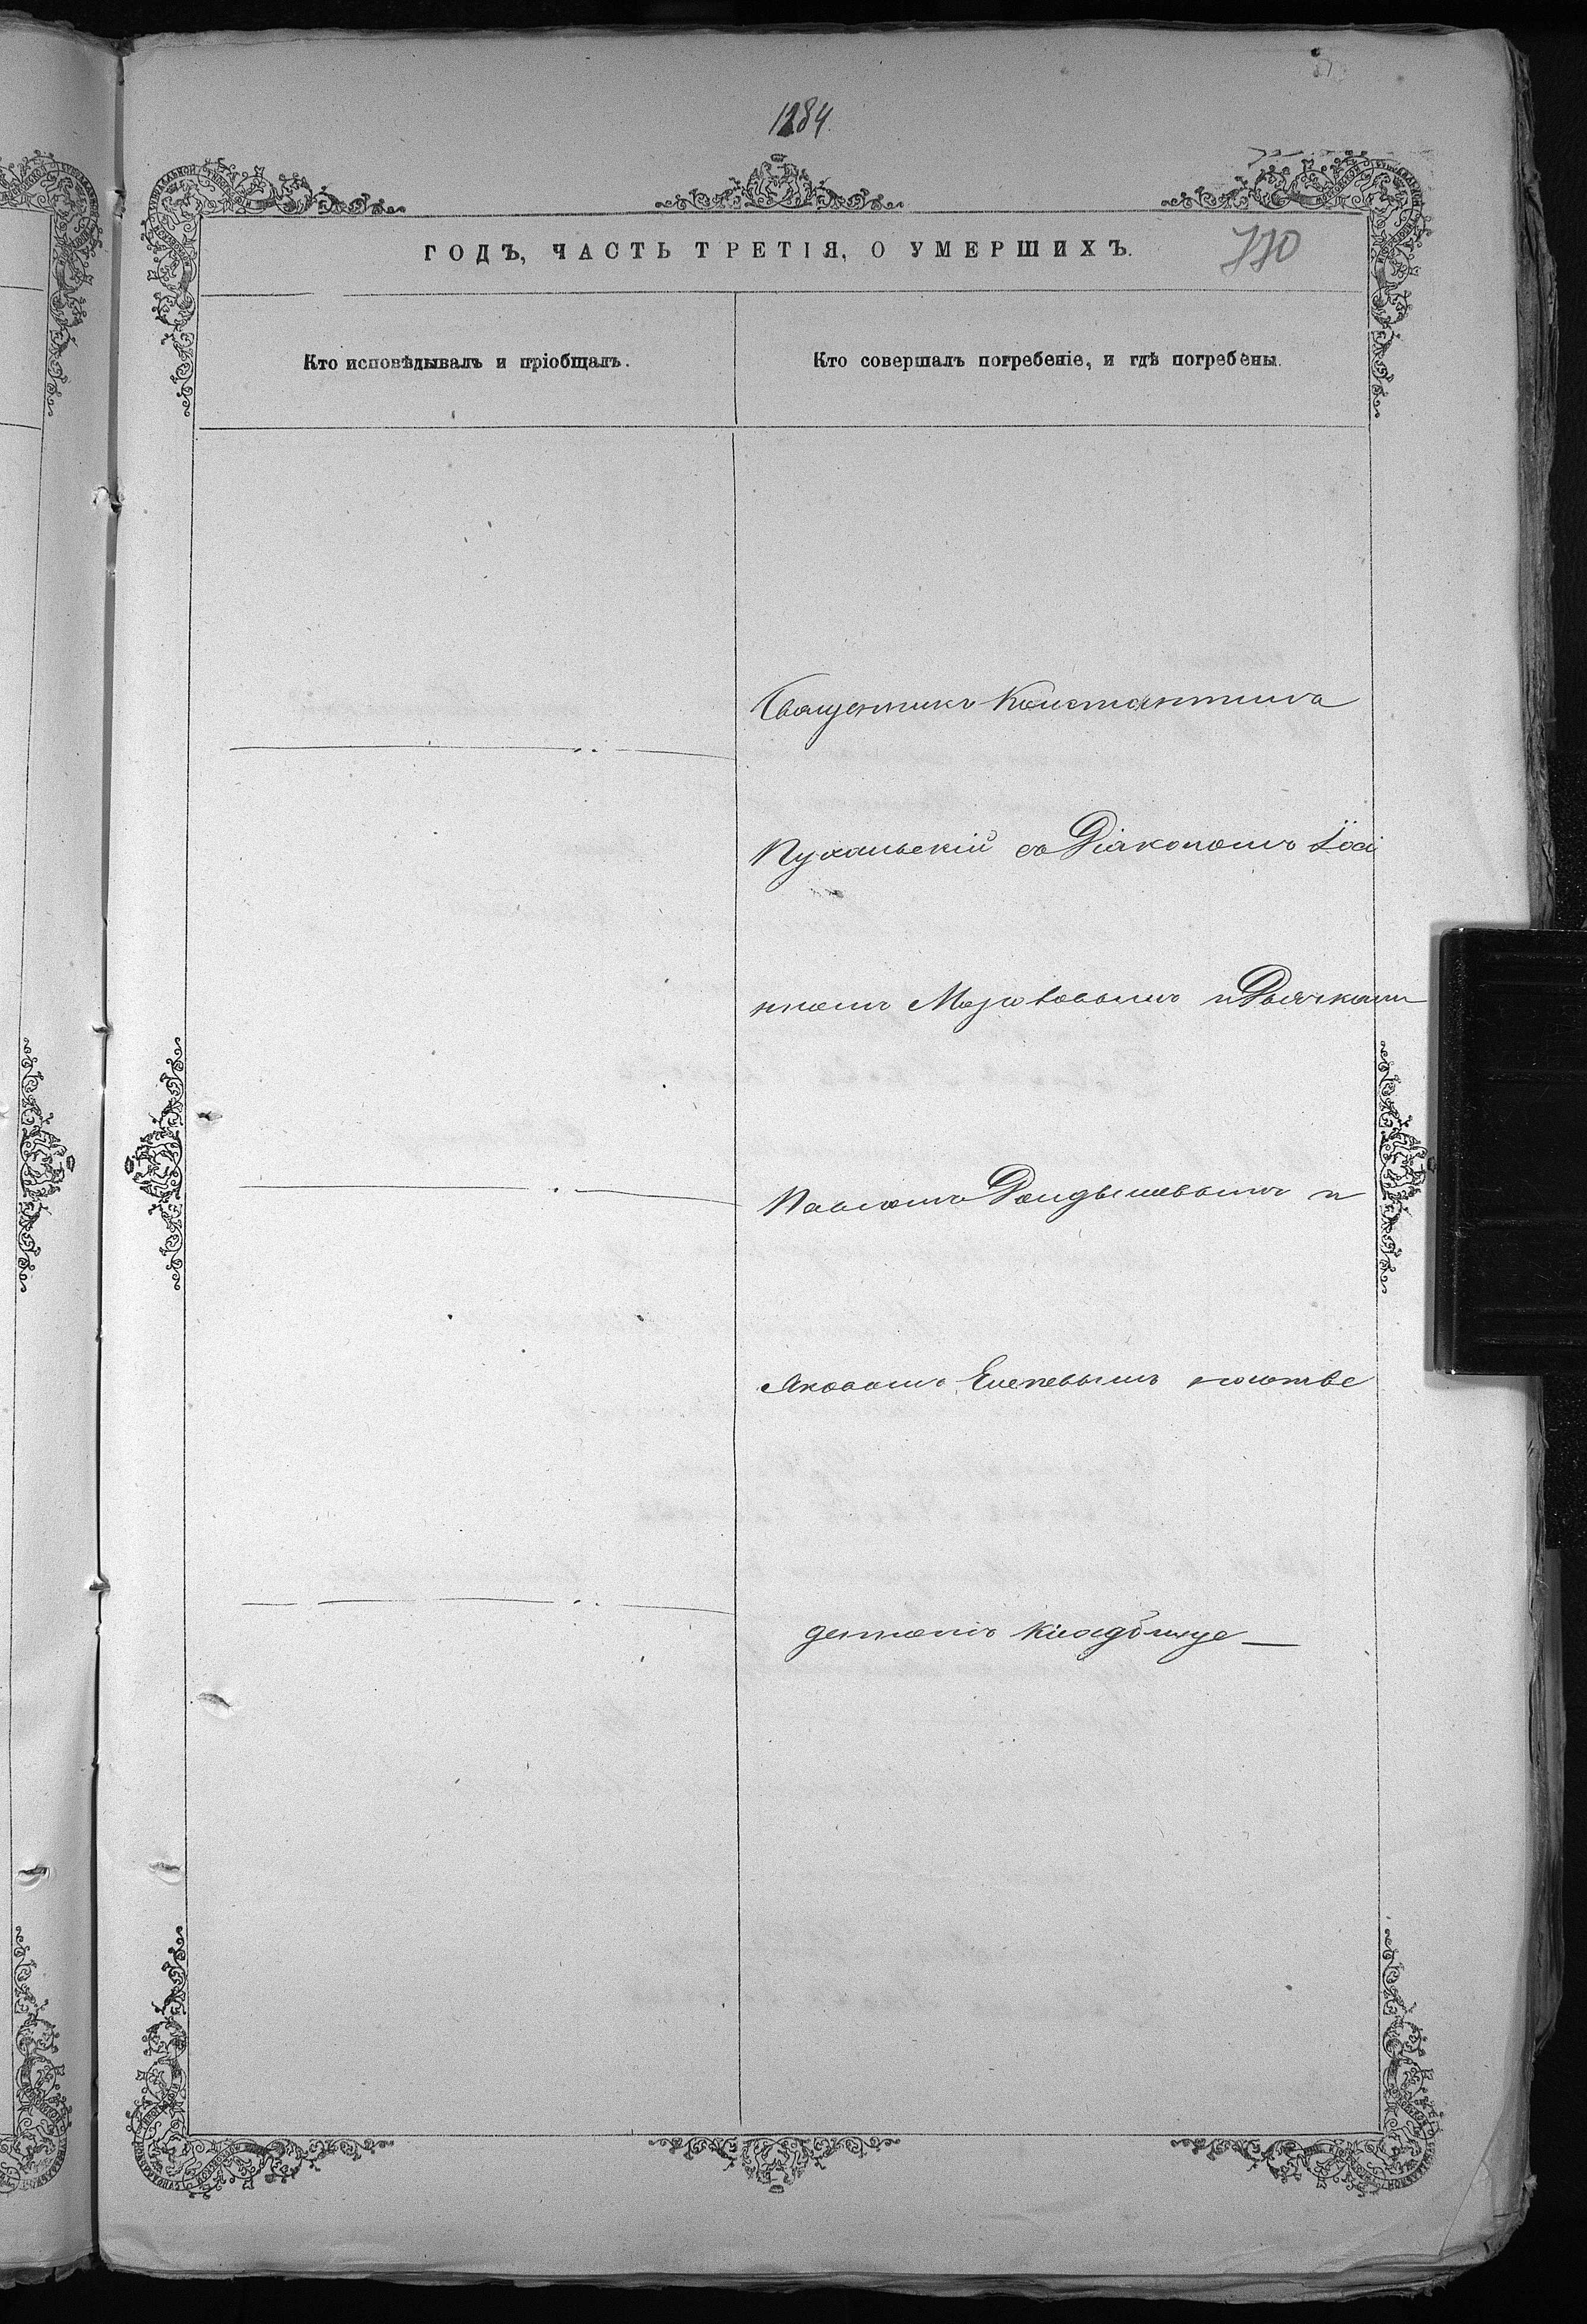 1284.
ГОДЪ, ЧАСТЬ ТРЕТІЯ, О УМЕРШИХЪ.
770
Кто исповѣдывалъ и пріобщалъ.
Кто совершалъ погребеніе, и гдѣ погребены.
Священникъ Константинъ
Пухальскій съ Діакономъ Іоа
нномъ и Дьячками
Павломъ и
Яковомъ
деннномъ Кладбище